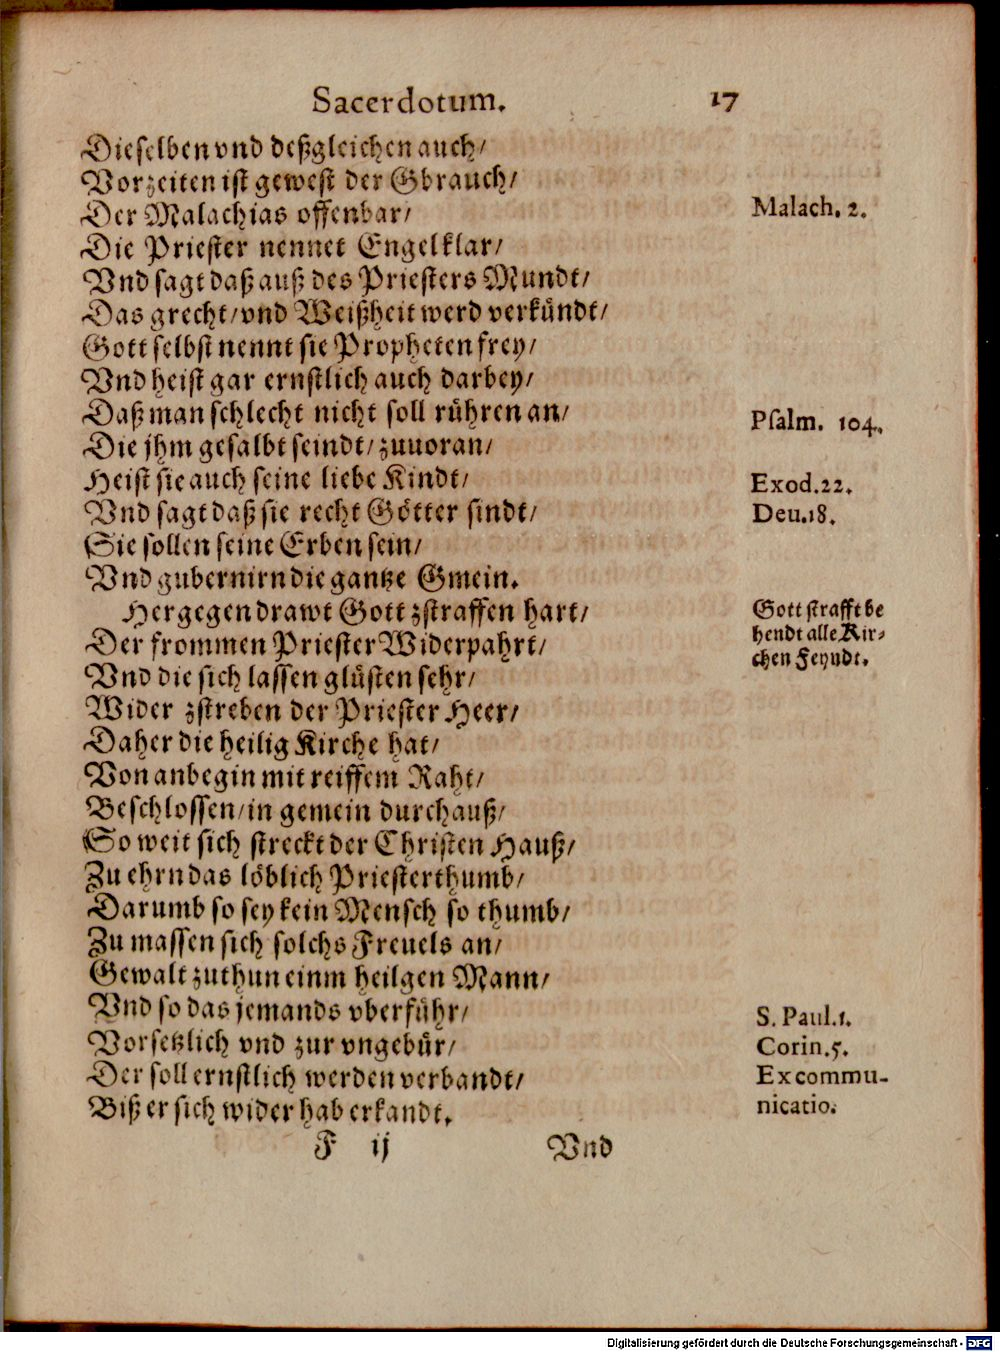 Sacerdotum. 17
Dieselben vnd deßgleichen auch/
Vorzeiten ist gewest der Gbrauch/
Der Malachias offenbar/
Malach. 2.
Die Priester nennet Engelklar/
Vnd sagt daß auß des Priesters Mundt/
Das grecht/vnd Weißheit werd verkündt/
Gott selbst nennt sie Propheten frey/
Vnd heist gar ernstlich auch darbey/
Daß man schlecht nicht soll rühren an/
Psalm. 104.
Die jhm gesalbt seindt/zuuoran/
Heist sie auch seine liebe Kindt/
Exod.22.
Vnd sagt daß sie recht Götter sindt/
Deu.18.
Sie sollen seine Erben sein/
Vnd gubernirn die gantze Gmein.
Hergegen drawt Gott zstraffen hart/
Gott strafft be
Der frommen Priester Widerpahrt/
hendt alle Kir-
chen Feyndt.
Vnd die sich lassen glüsten sehr/
Wider zstreben der Priester Heer/
Daher die heilig Kirche hat/
Von anbegin mit reiffem Raht/
Beschlossen/in gemein durchauß/
So weit sich streckt der Christen Hauß/
Zu ehrn das löblich Priesterthumb/
Darumb so sey kein Mensch so thumb/
Zu massen sich solchs Freuels an/
Gewalt zuthun einm heilgen Mann/
Vnd so das jemands vberführ/
S. Paul.1.
Vorsetzlich vnd zur vngebür/
Corin.5.
Der soll ernstlich werden verbandt/
Excommu-
Biß er sich wider hab erkandt.
nicatio.
F ij Vnd
Digitalisierung gefördert durch die Deutsche Forschungsgemeinschaft - DFG